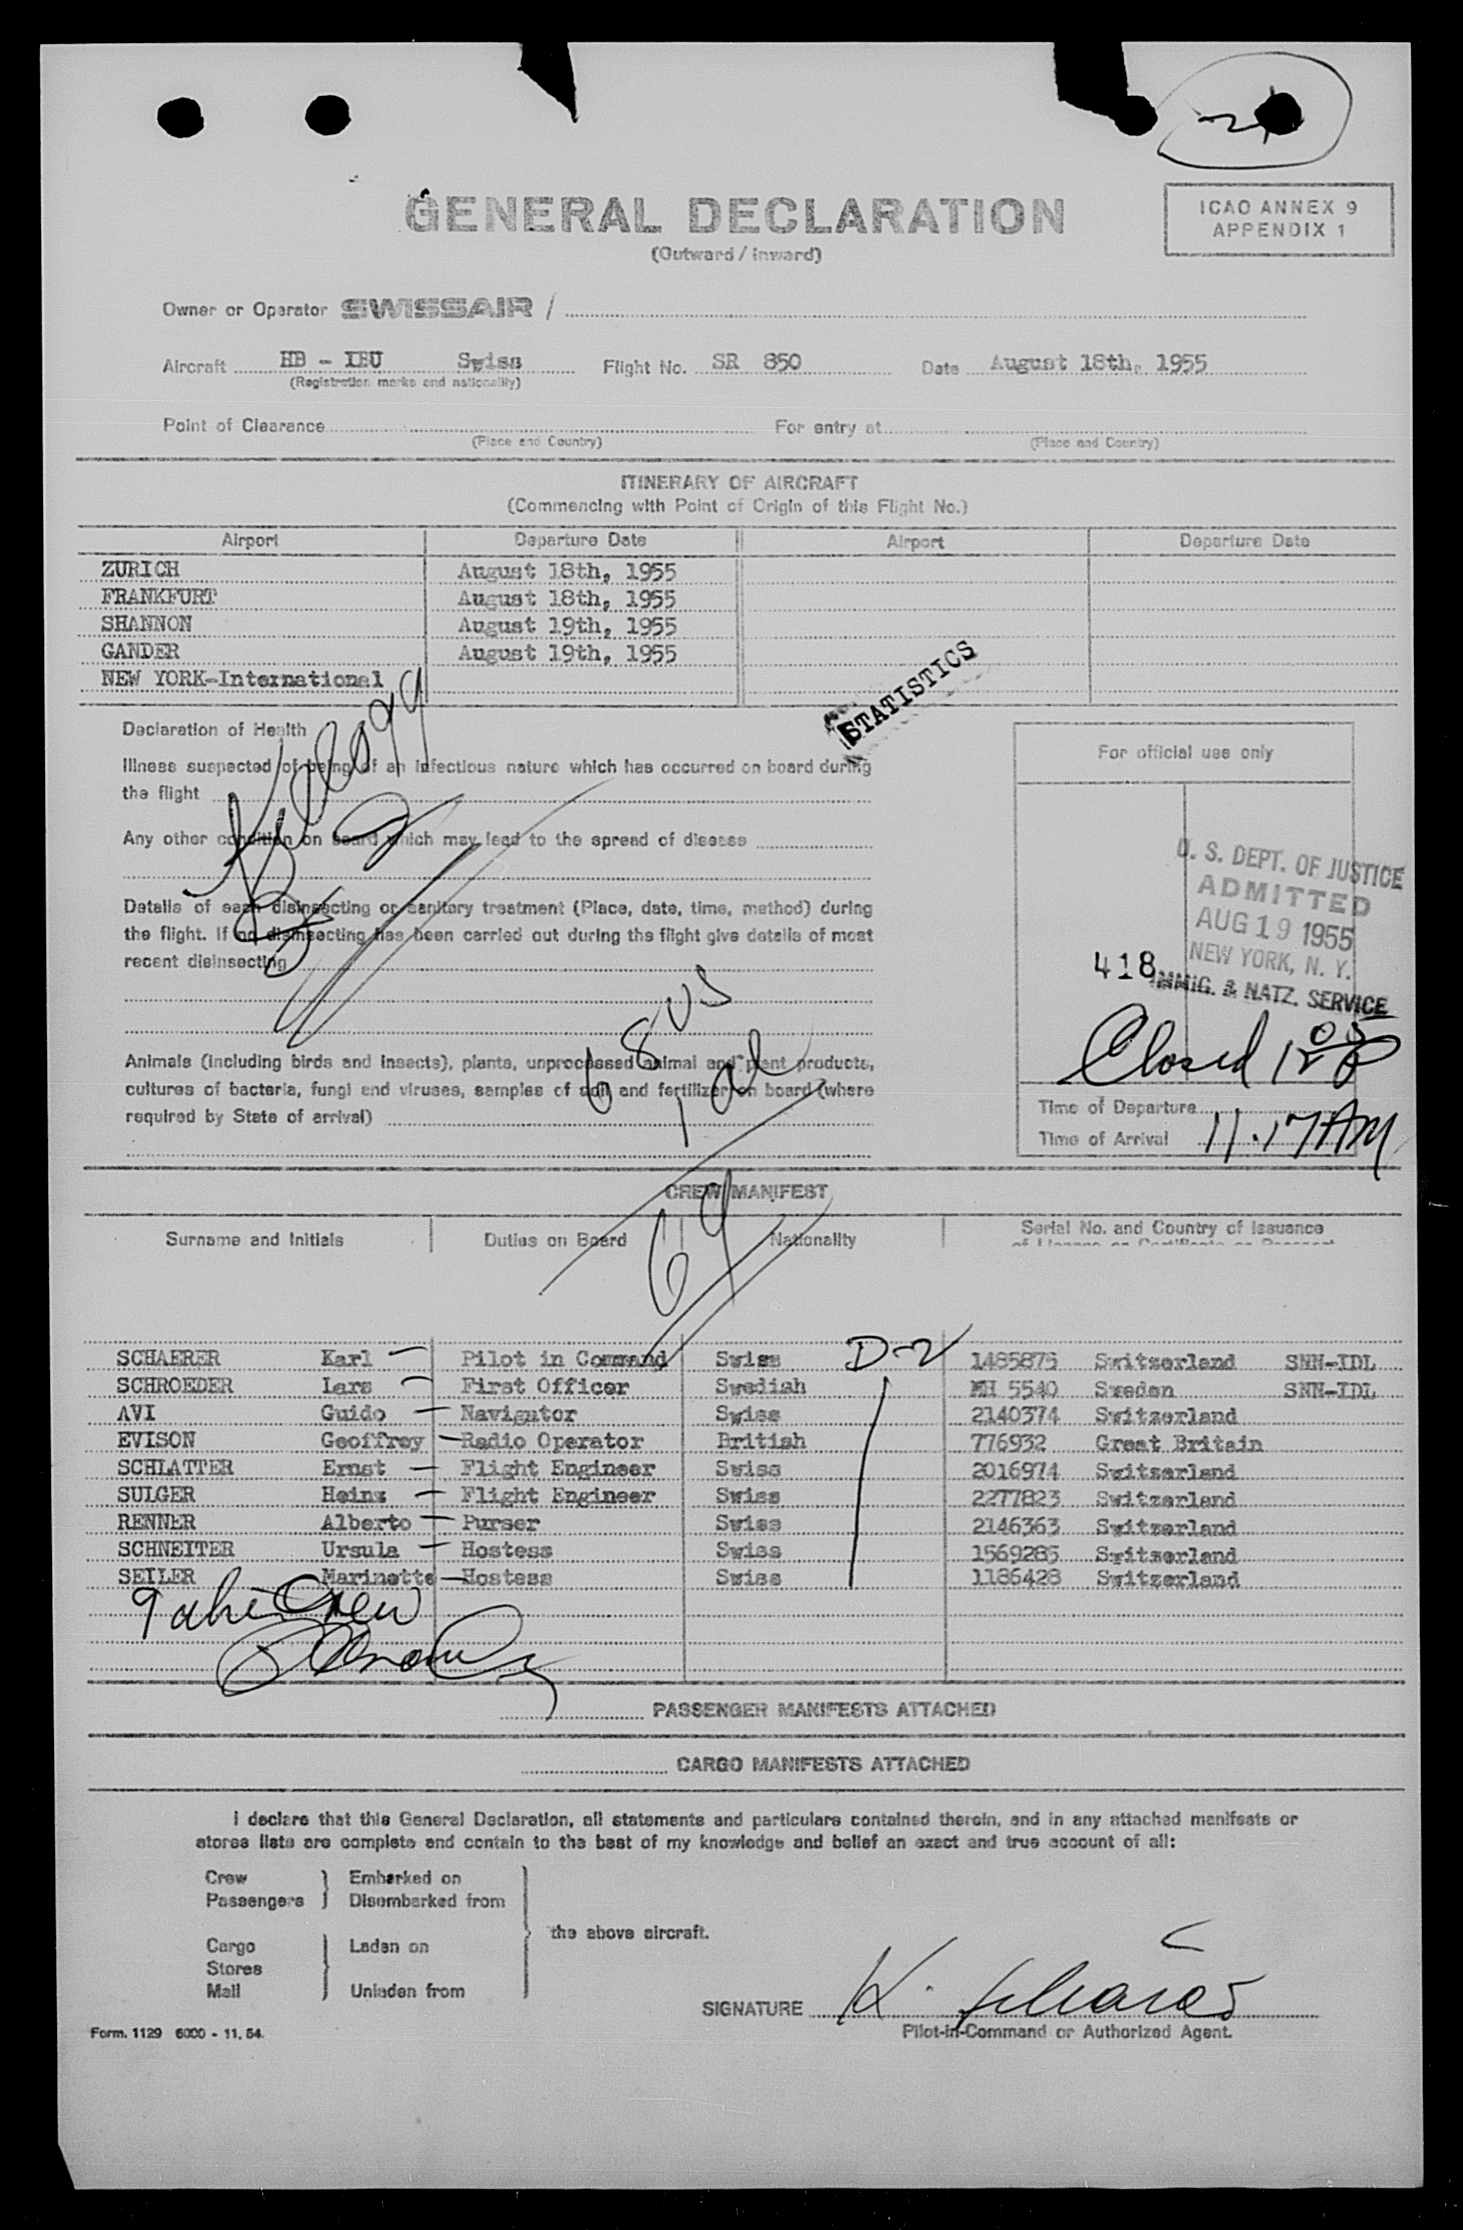 GENERAL DECLARATION
(Outward / Inward)
ICAO ANNEX 9
APPENDIX 1
Owner or Operator SWISSAIR /
Aircraft HB - IBU Swiss Flight No. SR 850 Date August 18th, 1955
(Registration marks and nationality)
Point of Clearance For entry at
(Place and Country) (Place and Country)
ITINERARY OF AIRCRAFT
(Commencing with Point of Origin of this Flight No.)
Airport Departure Date Airport Departure Date
ZURICH August 18th, 1955
FRANKFURT August 18th, 1955
SHANNON August 19th, 1955
GANDER August 19th, 1955
NEW YORK-International
STATISTICS
Declaration of Health
Illness suspected of being of an infectious nature which has occurred on board during
the flight
Kellogg
Any other condition on board which may lead to the spread of disease
Details of each disinsecting or sanitary treatment (Place, date, time, method) during
the flight. If no disinsecting has been carried out during the flight give details of most
recent disinsecting
68 US
1 al
Animals (including birds and insects), plants, unprocessed animal and plant products,
cultures of bacteria, fungi and viruses, samples of soil and fertilizer on board (where
required by State of arrival)
69
For official use only
U. S. DEPT. OF JUSTICE
ADMITTED
AUG 19 1955
NEW YORK, N. Y.
418
IMMIG. & NATZ. SERVICE
Closed
Time of Departure
Time of Arrival 11.17 AM
CREW MANIFEST
Surname and Initials Duties on Board Nationality Serial No. and Country of Issuance
of License or Certificate or Passport
SCHAERER Karl — Pilot in Command Swiss D-2 1485875 Switzerland SNN-IDL
SCHROEDER Lars — First Officer Swedish MH 5540 Sweden SNN-IDL
AVI Guido — Navigator Swiss 2140374 Switzerland
EVISON Geoffrey — Radio Operator British 776932 Great Britain
SCHLATTER Ernst — Flight Engineer Swiss 2016974 Switzerland
SULGER Heinz — Flight Engineer Swiss 2277823 Switzerland
RENNER Alberto — Purser Swiss 2146363 Switzerland
SCHNEITER Ursula — Hostess Swiss 1569285 Switzerland
SEILER Marinette — Hostess Swiss 1186428 Switzerland
Crew
PASSENGER MANIFESTS ATTACHED
CARGO MANIFESTS ATTACHED
I declare that this General Declaration, all statements and particulars contained therein, and in any attached manifests or
stores lists are complete and contain to the best of my knowledge and belief an exact and true account of all:
Crew Embarked on
Passengers Disembarked from
the above aircraft.
Cargo Laden on
Stores
Mail Unladen from
SIGNATURE K. Schärer
Pilot-in-Command or Authorized Agent.
Form. 1129 6000 - 11. 54.